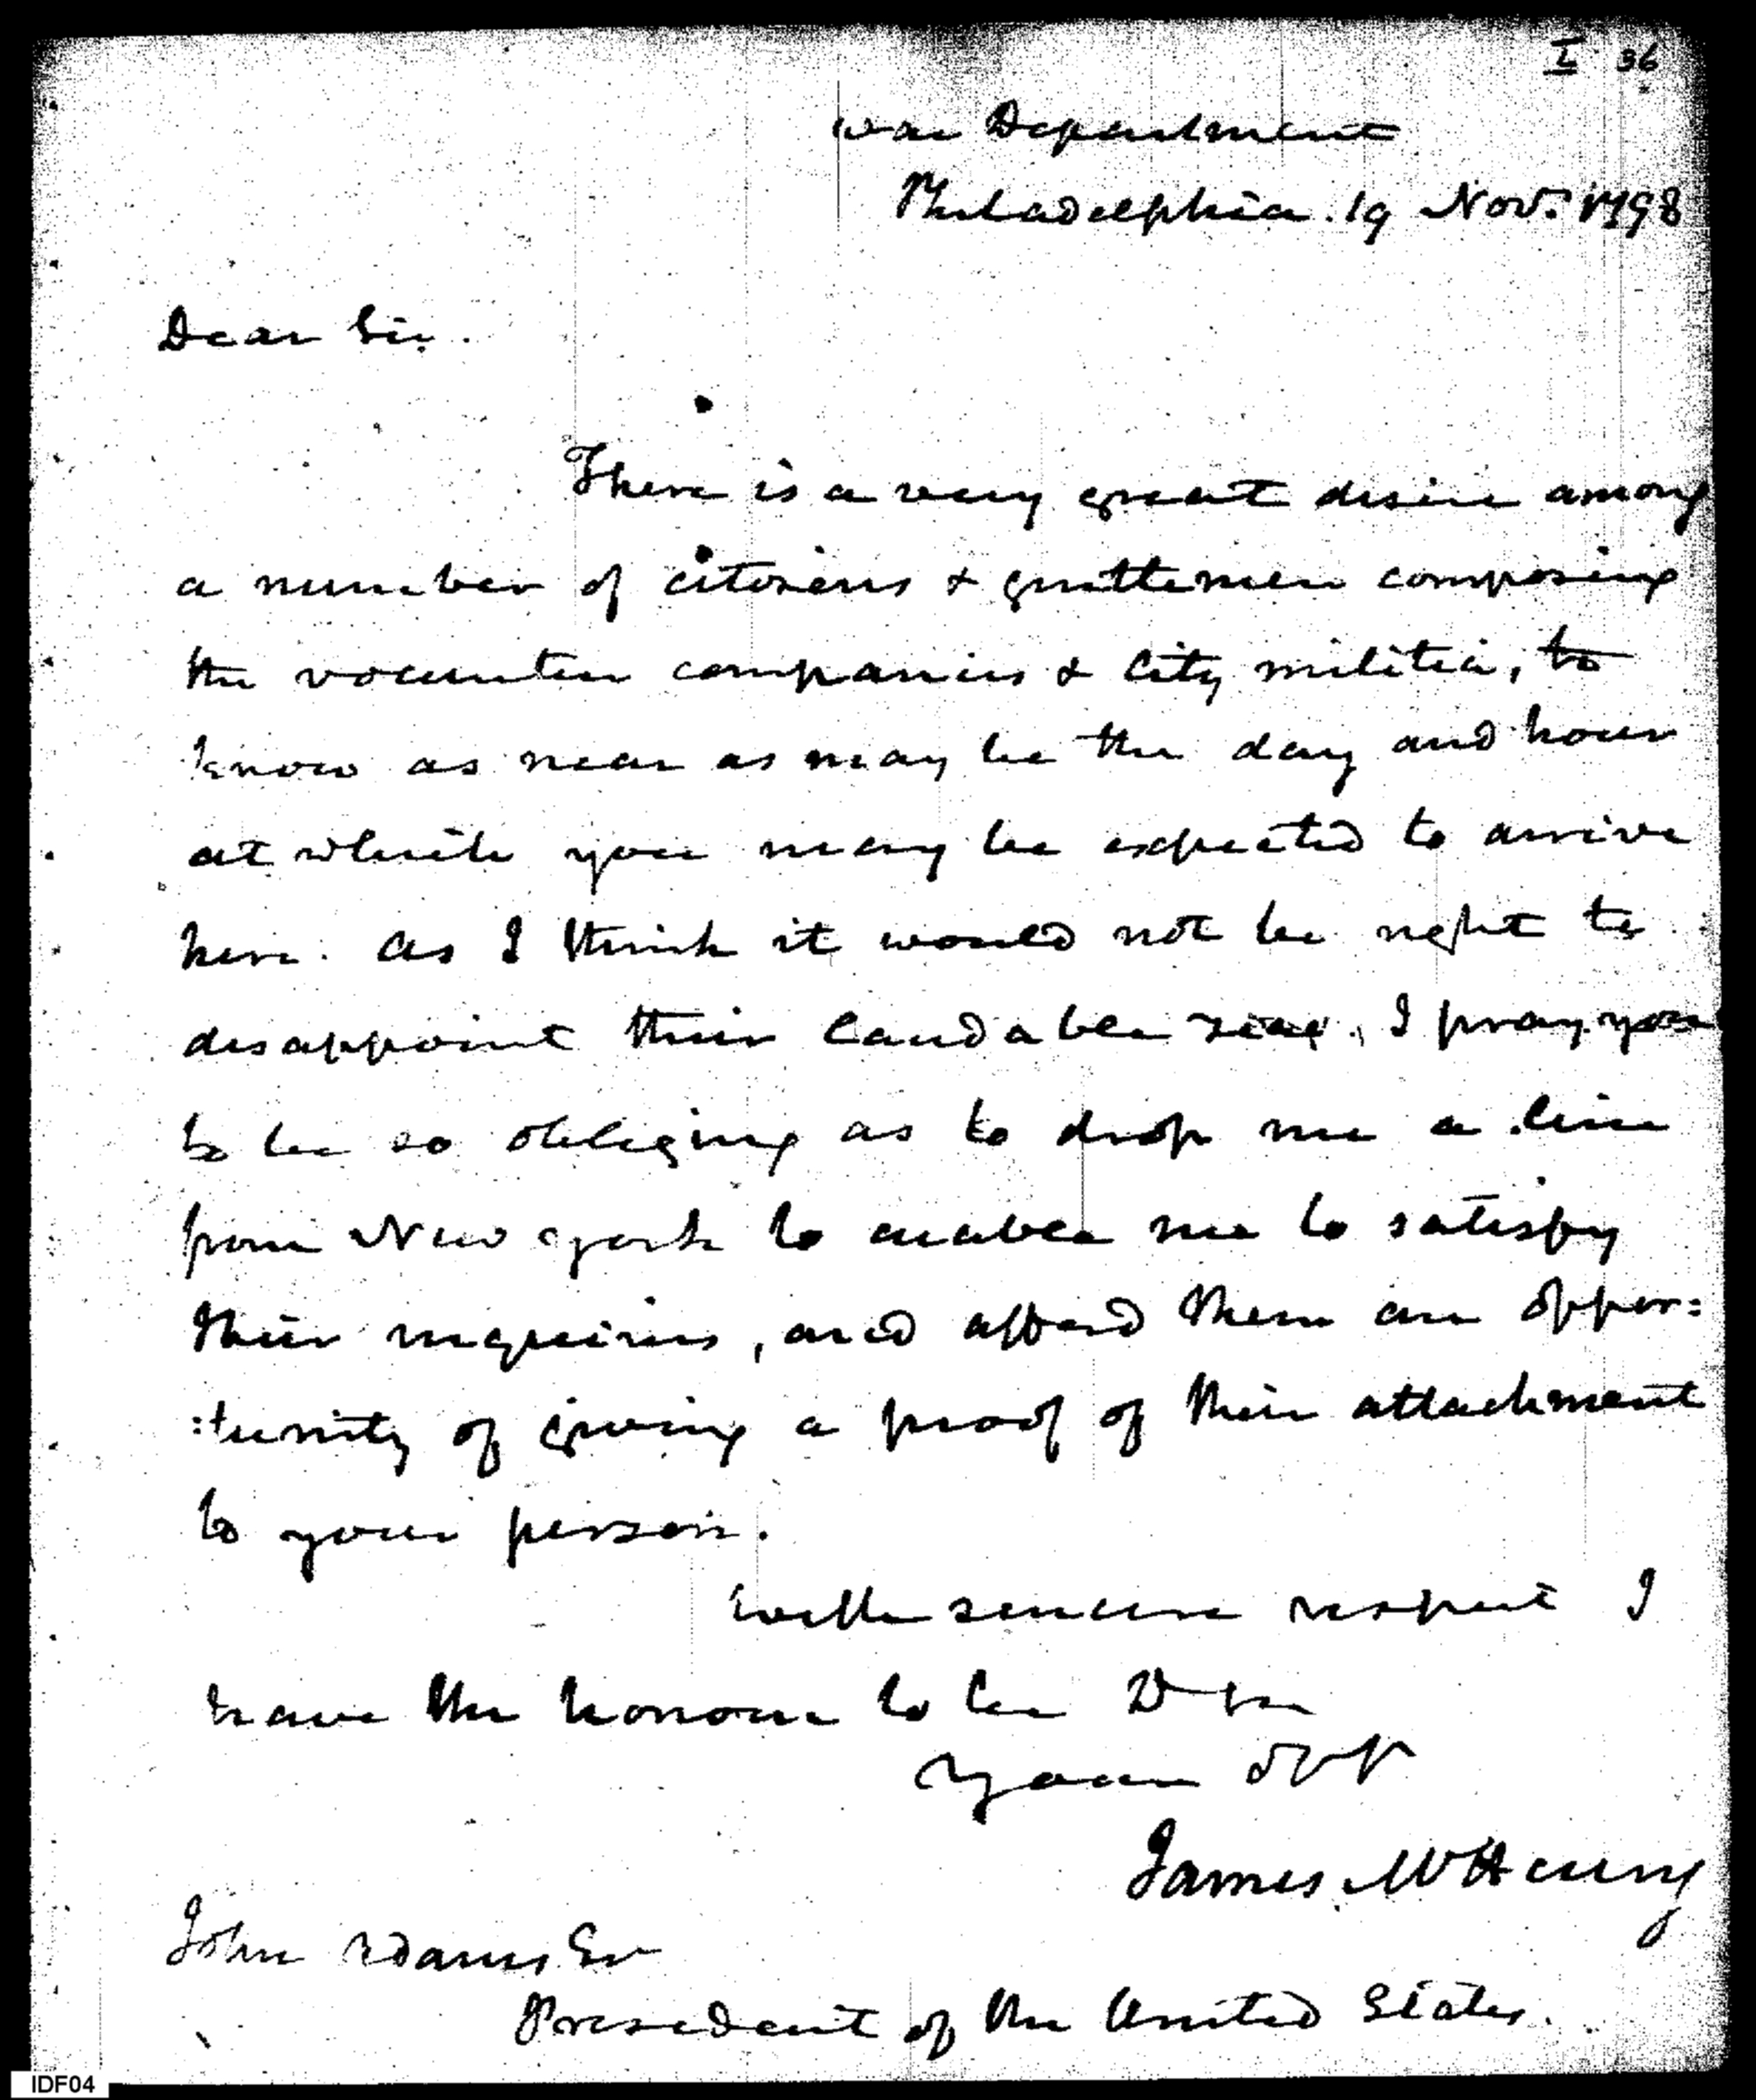 I 36
War Department
Philadelphia. 19 Nov. 1798
Dear Sir.
There is a very great desire among
a number of citizens & gentlemen composing
the volunteer companies & City militia, to
know as near as may be the day and hour
at which you may be expected to arrive
here. As I think it would not be right to
disappoint their laudable zeal, I pray you
to be so obliging as to drop me a line
from New York to enable me to satisfy
their inquiries, and afford them an oppor=
:tunity of giving a proof of their attachment
to your person.
With sincere respect I
have the honour to be D Sir
Your
James McHenry
John Adams
President of the United States.
IDF04